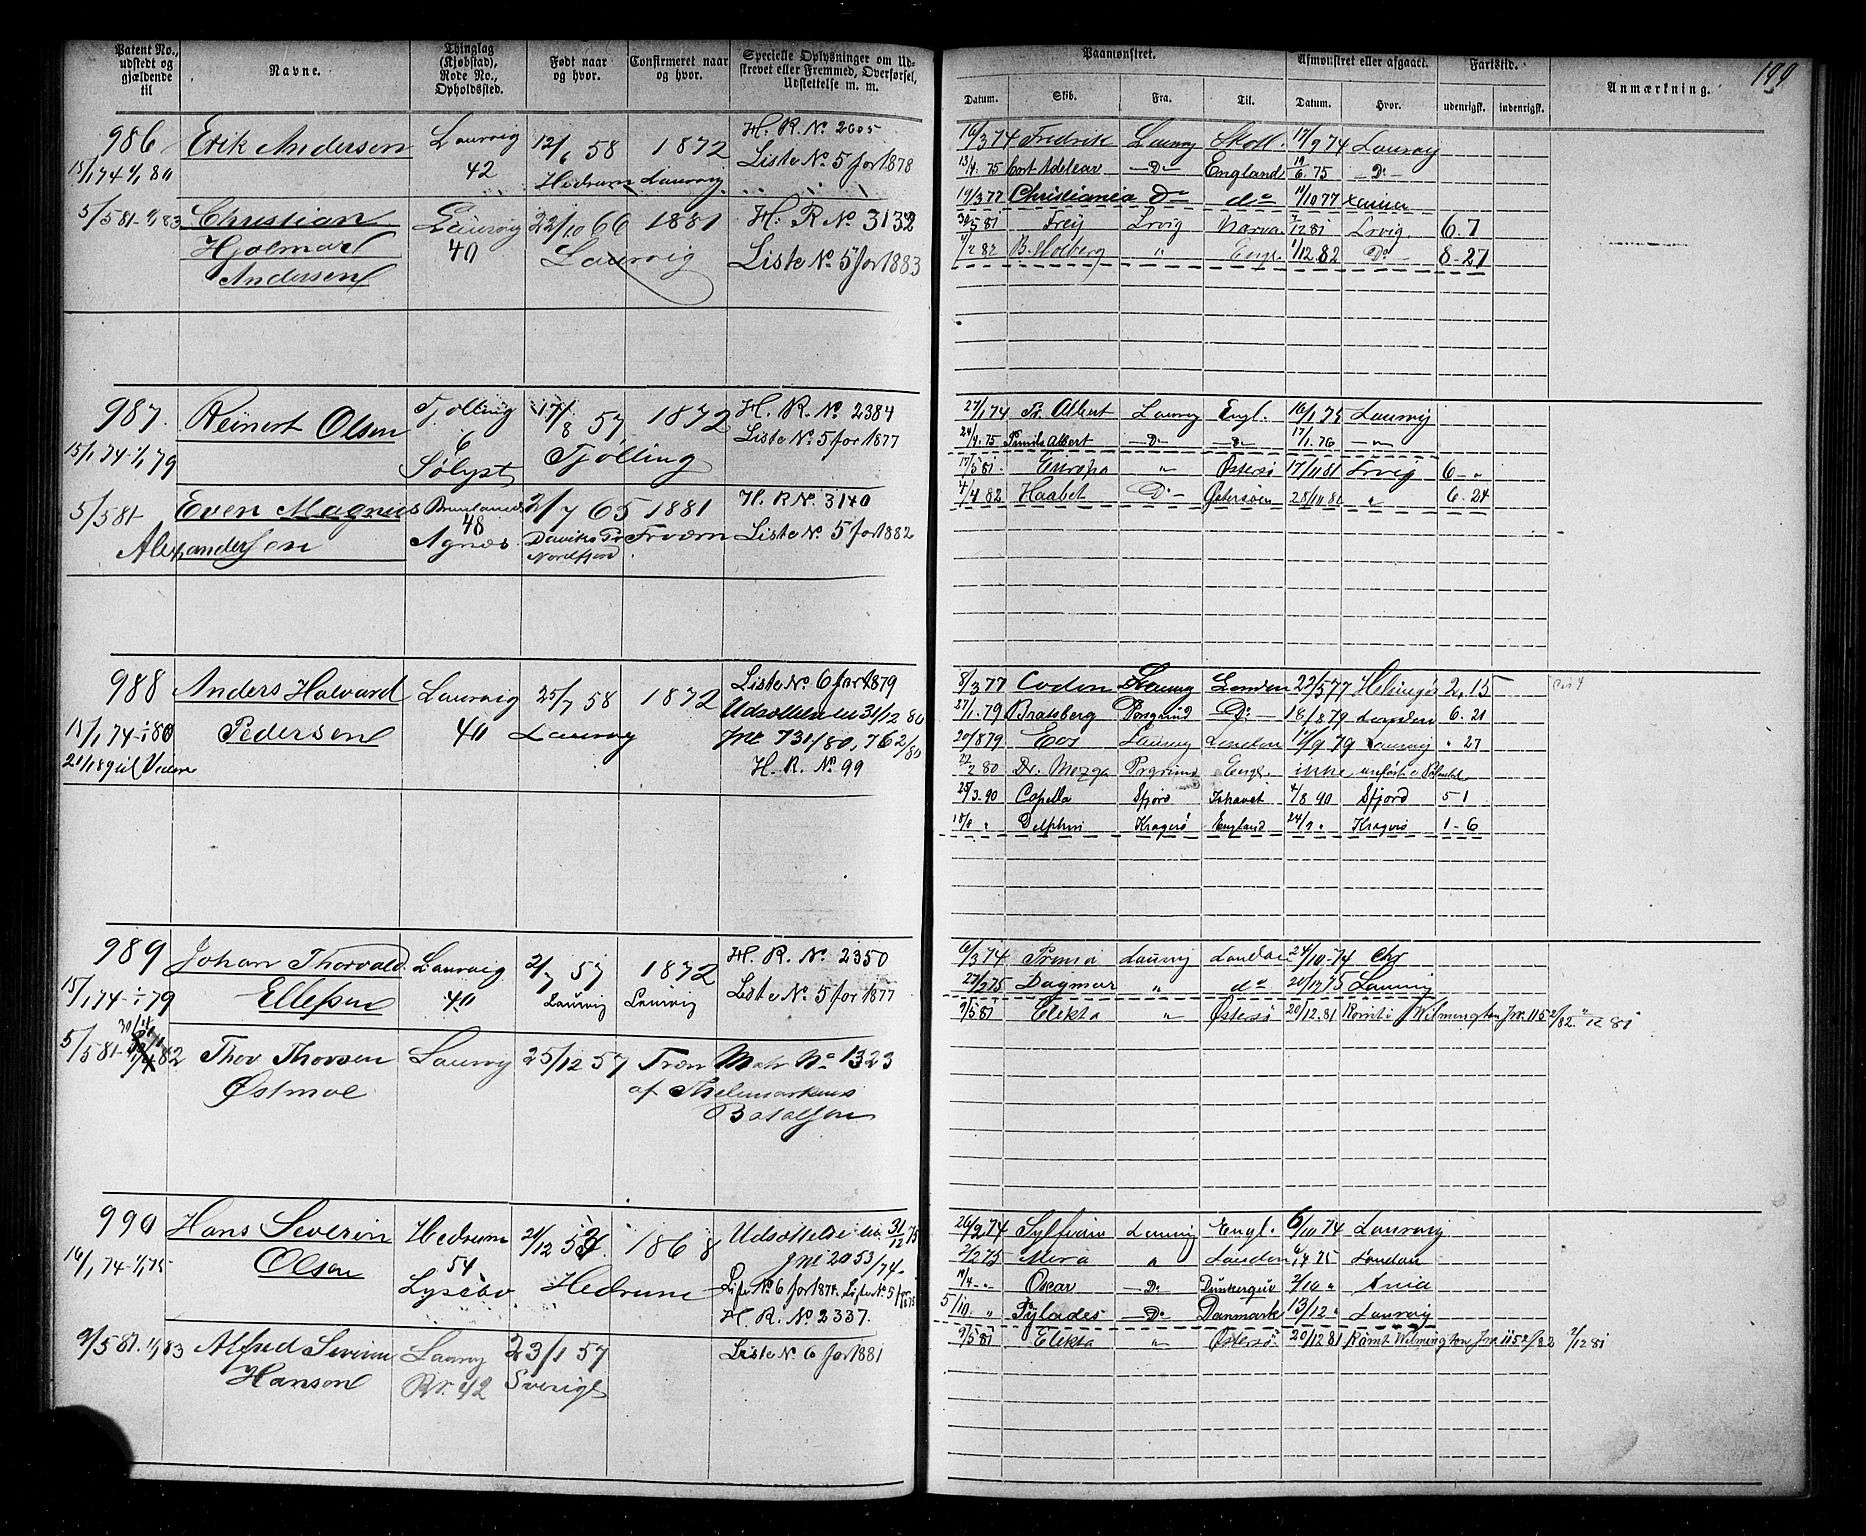 199
Patent No., udstedt og gjældende til
Navne.
Thinglag (Kjøbstad), Rode No., Opholdssted.
Født naar og hvor.
Confirmeret naar og hvor.
Specielle Oplysninger om Udskrevet eller Fremmed, Overførsel, Udslettelse m. m.
Paamønstret.
Afmønstret eller afgaaet.
Fartstid.
Anmærkning.
Datum. Skib. Fra. Til. Datum. Hvor. udenrigsk. indenrigsk.
986 Erik Andersen Laurvig 12/6 58 1872 H. R. No 2005
15/1 74 1/1 80 42 Hedrum Laurvig Liste No 5 for 1878
5/5 81 - 1/1 83 Christian Laurvig 22/10 66 1881 H. R No 3132
Hjalmar 40 Laurvig Liste No 5 for 1883
Andersen
16/3 74 Fredrik Laurvig Skotl. 17/9 74 Laurvig
13/4 75 Cort Adelear — Do — England 19/6 75 — Do —
19/3 77 Christiania Do do 11/10 77
30/5 81 Frey Lrvig Narva 7/12 81 Lrvig. 6. 7
1/2 82 B. Holberg " Engl. 1/12 82 Do — 8-27
987. Reinert Olsen Tjølling 17/8 57 1872 H. R. No 2384
15/1 74 - 1/1 79 6 Sølyst Tjølling Liste No 5 for 1877
5/5 81 Even Magnus Brunlanes 2/7 65 1881 H. R No. 3140
Alexandersen 48 Agnæs Nordfjord Liste No 5 for 1882
27/1 74 Pr. Albert Laurvig Engl. 16/1 75 Laurvig
24/4 75 Prinds Albert — Do — 17/1 76 — " —
17/5 81 Europa " Østersø 17/11 81 Lrvig 6 - "
4/4 82 Haabet Do — Østersøen 28/10 82 " 6. 24
988 Anders Halvard Laurvig 25/7 58 1872 Liste No 6 for 1879
15/1 74 - 1/1 80 Pedersen 40 Laurvig Udslettes 31/12 80
Jnl 731/80, 762/80
H. R. No 99
8/3 77 Codan Laurvig London 22/5 77 Helsingør 2, 15
27/1 79 Bratsberg Porsgrund Do — 18/8 79 London 6. 21
20/8 79 Eos Laurvig London 17/9 79 Laurvig " 27
Engl. ikke
25/3 90 Capella Sfjord Ishavet 4/8 90 Sfjord 5 1
18/8 " Delphin Kragerø England 24/9 " Kragerø 1 - 6
989 Johan Thorvald Laurvig 2/7 57 1872 H. R. No 2350
15/1 74 - 1/1 79 Ellefsen 40 Laurvig Laurvig Liste No 5 for 1877
5/5 81 Thor Thorsen Laurvig 25/12 57 Træn Matr No 1323
Østmoe af Thelemarkens
Bataljon
6/3 74 Prima Laurvig London 24/10 74 Chr
27/2 75 Dagmar " do 20/12 75 Laurvig
9/5 81 Elekta " Østersø 20/12 81 Rømt i Wilmington Jnr. 115 2/82. 2/12 81
990 Hans Severin Hedrum 21/12 1868 Udslettes 31/12 75
16/1 74 - 1/1 75 Olsen 54 Lysebo Hedrum Jnl 2053/74
Liste No 6 for 1874. Liste No 5 for 1875
H. R. No 2337.
9/5 81 - 1/1 83 Alfred Severin Laurvig 23/1 57 Liste No 6 for 1881
Hanson Rr. 42 Sverige
26/2 74 Sylfiden Laurvig Engl. 6/10 74 Laurvig
2/2 75 Mira " London 6/4 75 London
19/4 - " Oscar — Do Dünkerque 2/10 "
5/10. " Pylades — Do Danmark 13/12 " Laurvig
9/5 81 Elekta " Østersø 20/12 81 Rømt Wilmington Jnr. 115 2/82 2/12 81